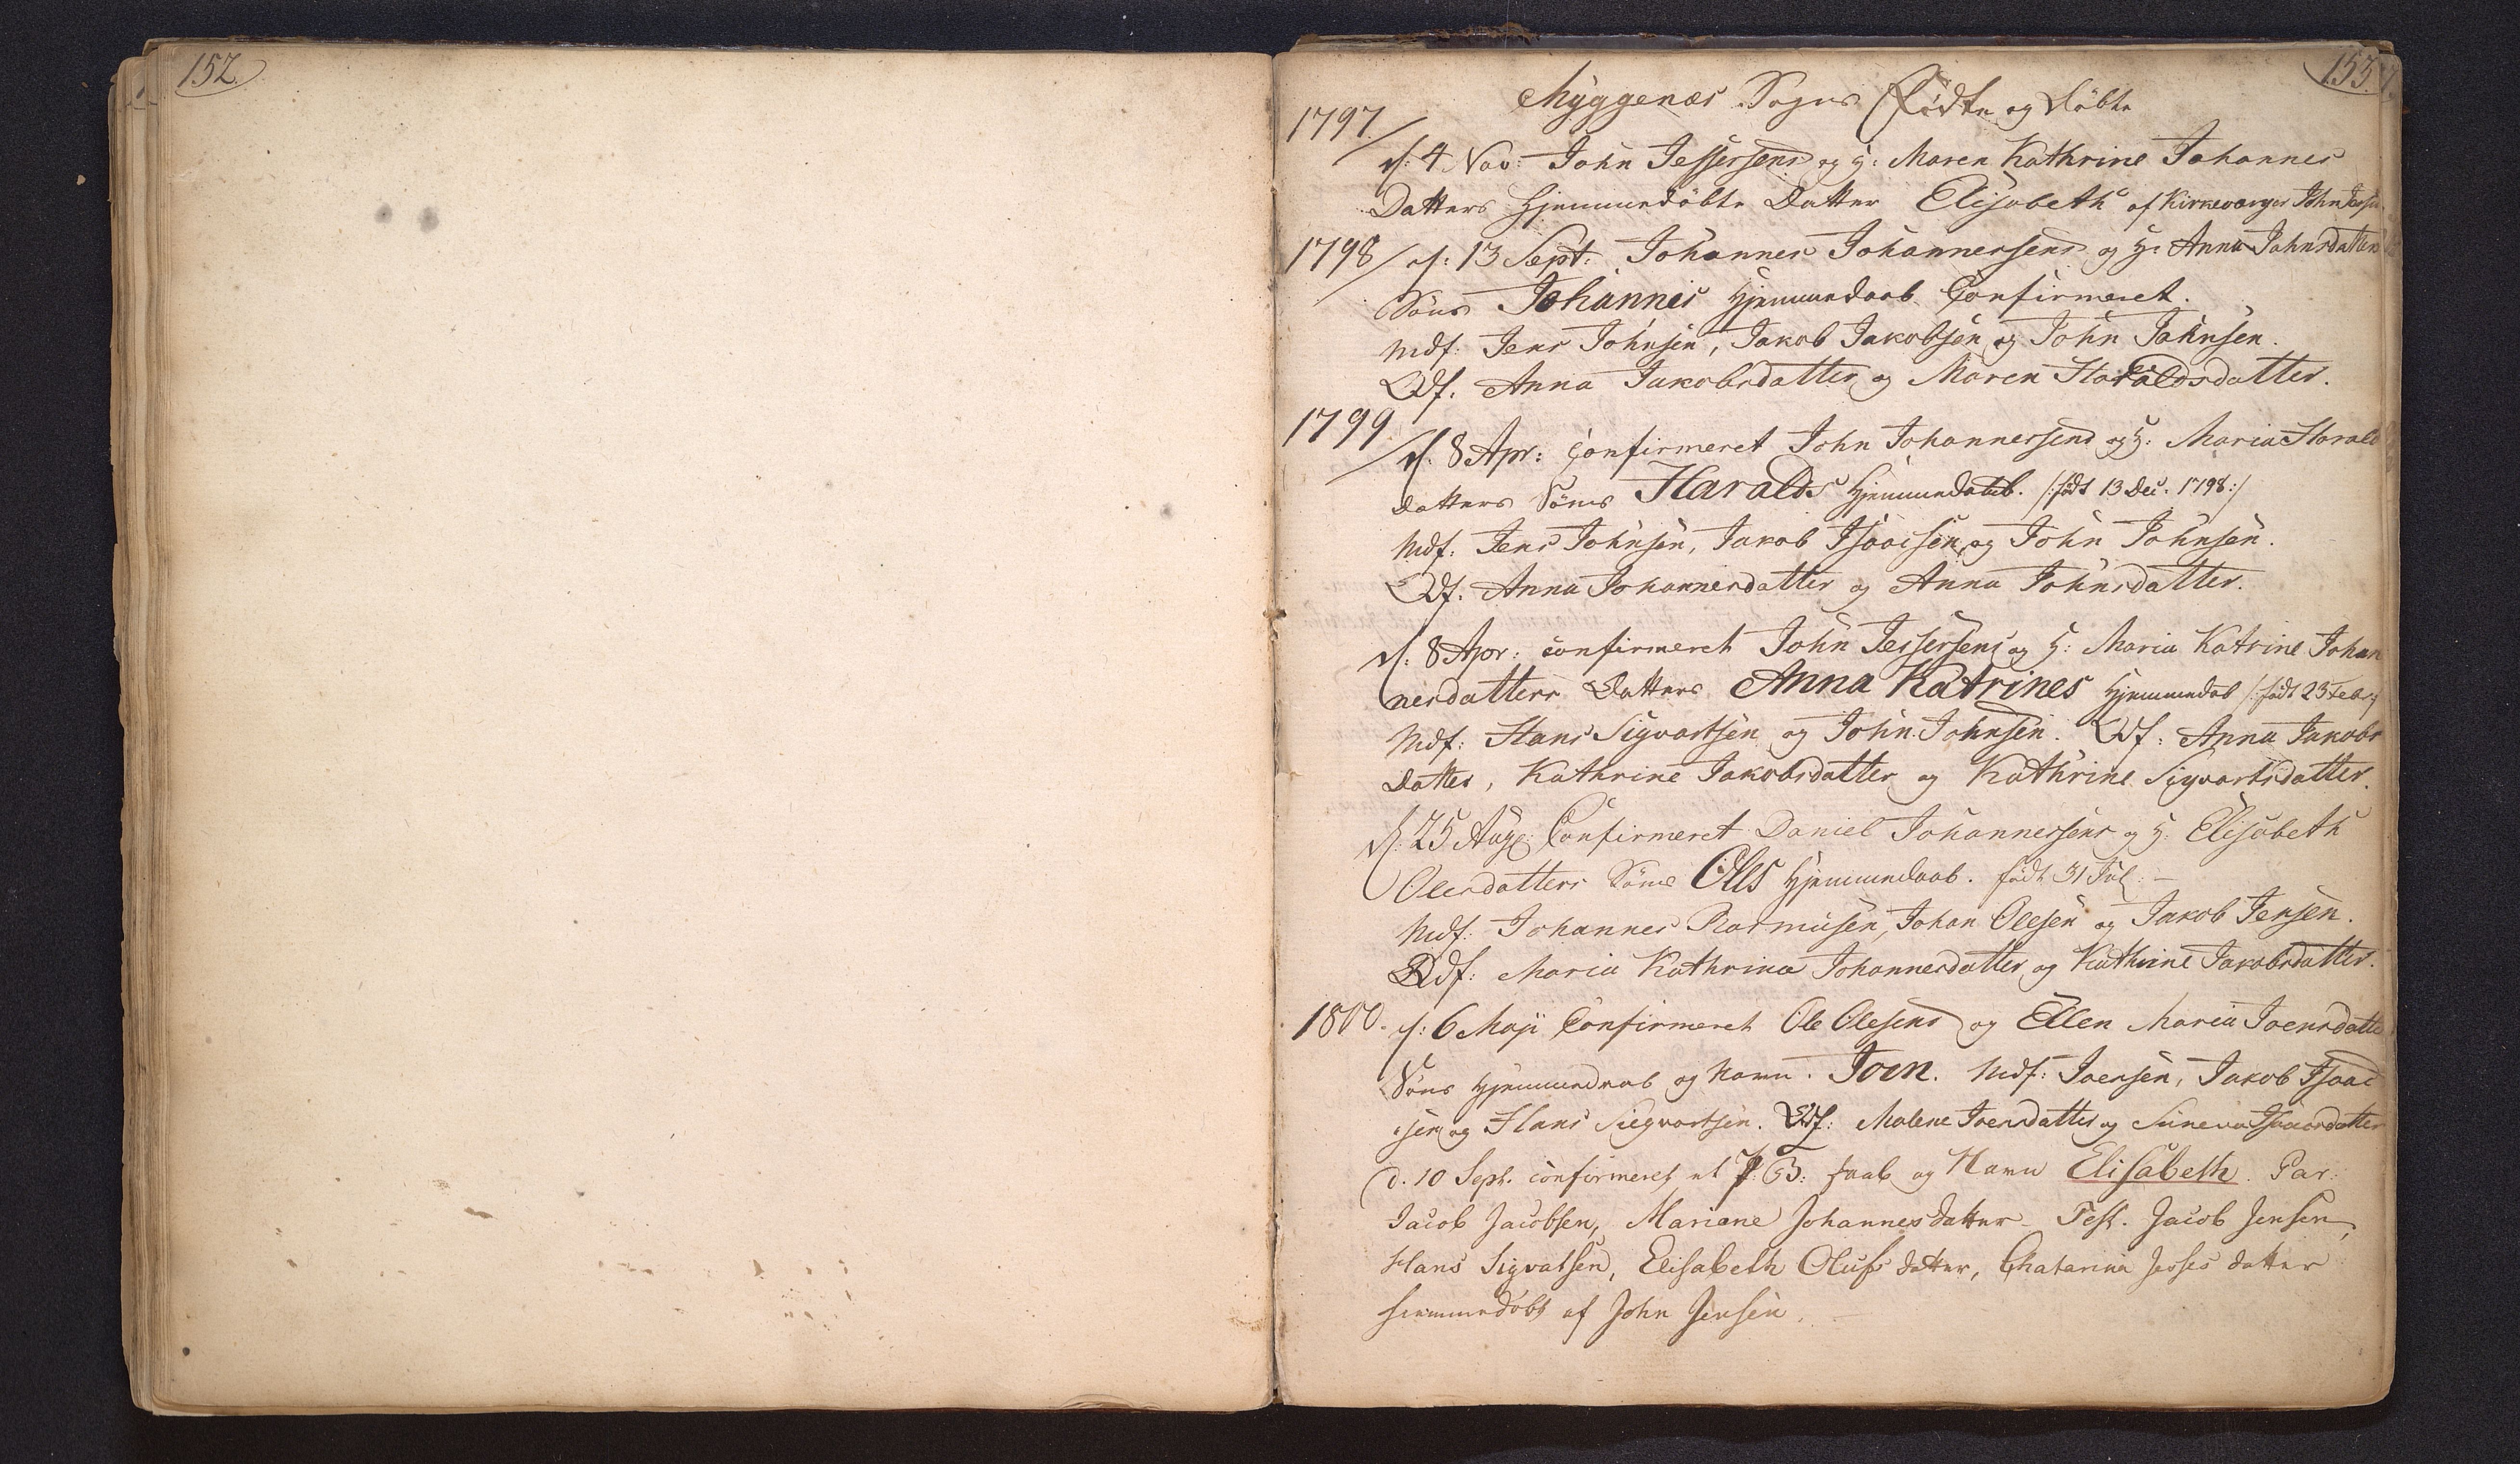 152.
153.
Myggenæs Sogns Födte og Döbte
1797.
d: 4 Nov: John Jessersens og H: Maren Kathrine Johannes
Datters Hjemmedöbte Datter Elisabeth af Kirkeværger John
1798 d: 13 Sept: Johannes Johannessens og H: Anna Johnsdatters
Söns Johannis Hjemmedaab Confirmeret.
Mdf: Jens Johnsen, Jakob Jakobsen og John Johnsen.
Qdf. Anna Jakobsdatter og Maren Haraldsdatter.
1799
d. 8 Apr: Confirmeret John Johannessens og H: Maria Harald
datters Söns Haralds Hjemmedaab. /:født 13 Dec. 1798:/
Mdf. Jens Johnsen, Jakob Isaacsen, og John Johnsen.
Qdf. Anna Johannesdatter og Anna Johnsdatter.
d: 8 Apr: confirmeret John Jessersens og H: Maria Katrine Johan
nesdatters Datters Anna Katrines Hjemmedab /:født 23 Febr:/
Mdf: Hans Sigvartsen og John Johnsen. Qdf: Anna Jakobs
Datter, Kathrine Jakobsdatter og Kathrine Sigvartsdatter.
d. 25 Aug: Confirmeret Daniel Johannessens og H: Elisabeth
Olesdatters Söns Olls Hjemmedaab. født 31 Jul: –
Mdf: Johannes Rasmusen, Johan Olesen og Jakob Jensen.
Qdf: Maria Kathrina Johannesdatter og Kathrine Jakobsdatter.
1800. d: 6 Maji Confirmeret Ole Olesens og Ellen Maria Joensdatte
Söns Hjemmedaab og Navn. Joen. Mdf: Joensen, Jakob Isaac
sen og Hans Siegvartsen. Qdf: Malene Joensdatter og Suneva Isaacsdatter
d. 10 Sept. confirmeret et B: daab og Navn Elisabeth. Par:
Jacob Jacobsen, Mariane Johannesdatter – Test. Jacob Jensen,
Hans Sigvatsen, Elisabeth Olufsdatter, Chatarina Jesses datter
hiemmedøbt af John Jensen.